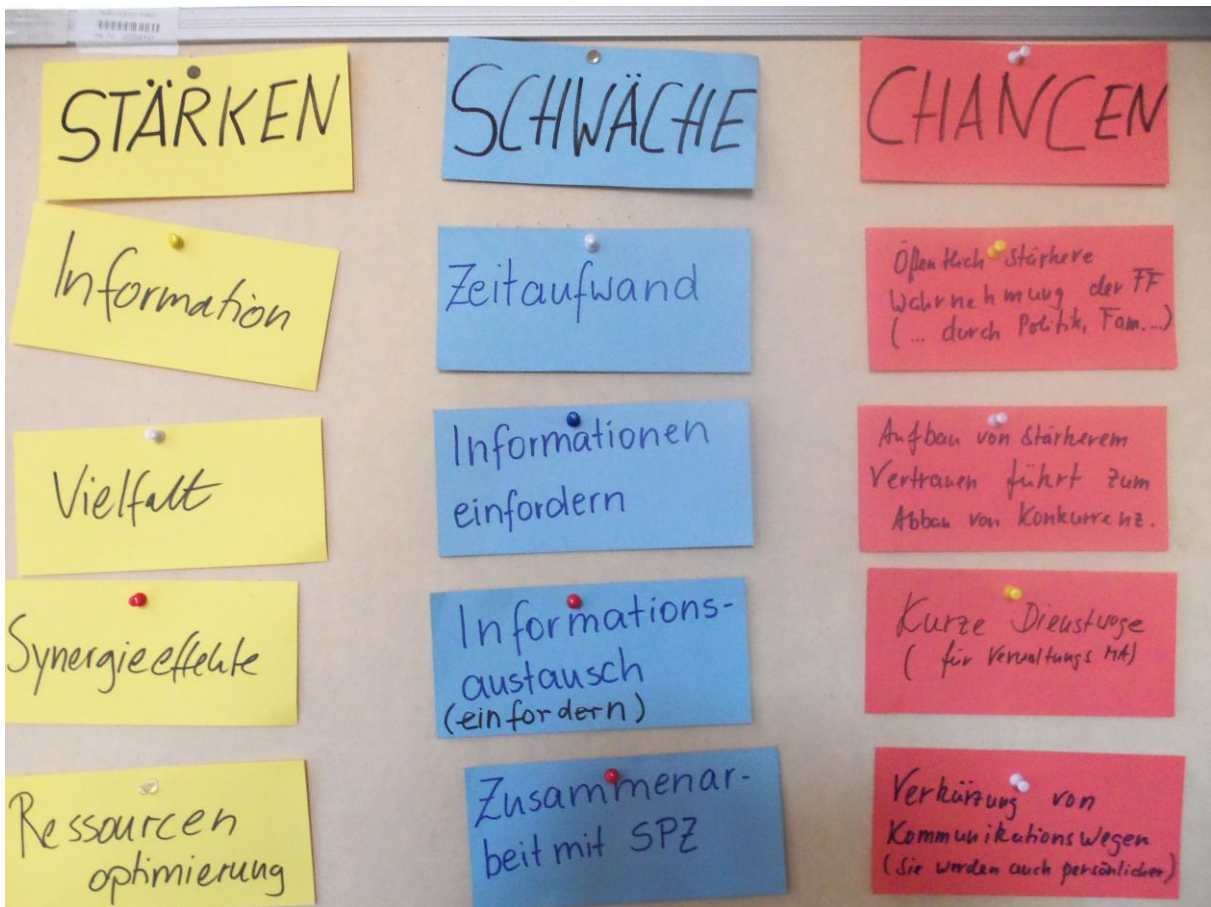 STÄRKEN
Information
Vielfalt
Synergieeffekte
Ressourcen
optimierung
SCHWÄCHE
Zeitaufwand
Informationen
einfordern
Informations-
austausch
(einfordern)
Zusammenar-
beit mit SPZ
CHANCEN
Öffentlich stärkere
Wahrnehmung der FF
(... durch Politik, Fam....)
Aufbau von stärkerem
Vertrauen führt zum
Abbau von Konkurrenz.
Kurze Dienstwege
(für Verwaltungs MA)
Verkürzung von
Kommunikationswegen
(Sie werden auch persönlicher)